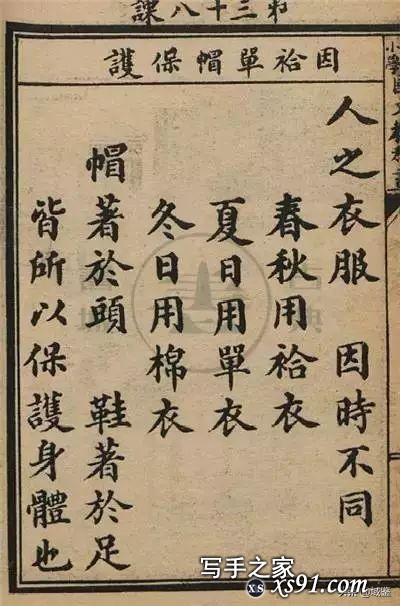 第三十八課
因袷單帽保護
人之衣服　因時不同
春秋用袷衣
夏日用單衣
冬日用棉衣
帽著於頭　鞋著於足
皆所以保護身體也
写手之家
xs91.com